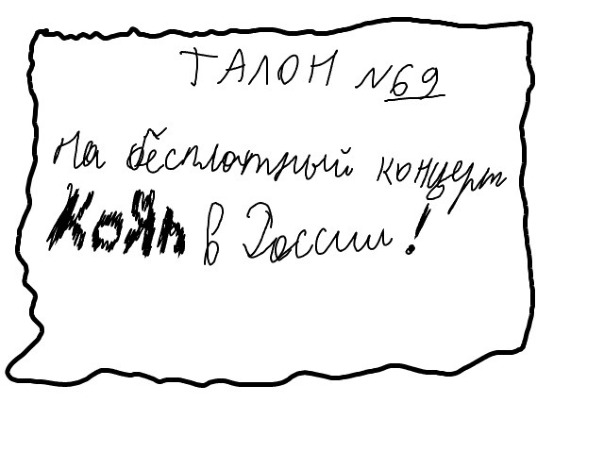 ТАЛОН №69
на бесплатный концерт
КоЯn в России!